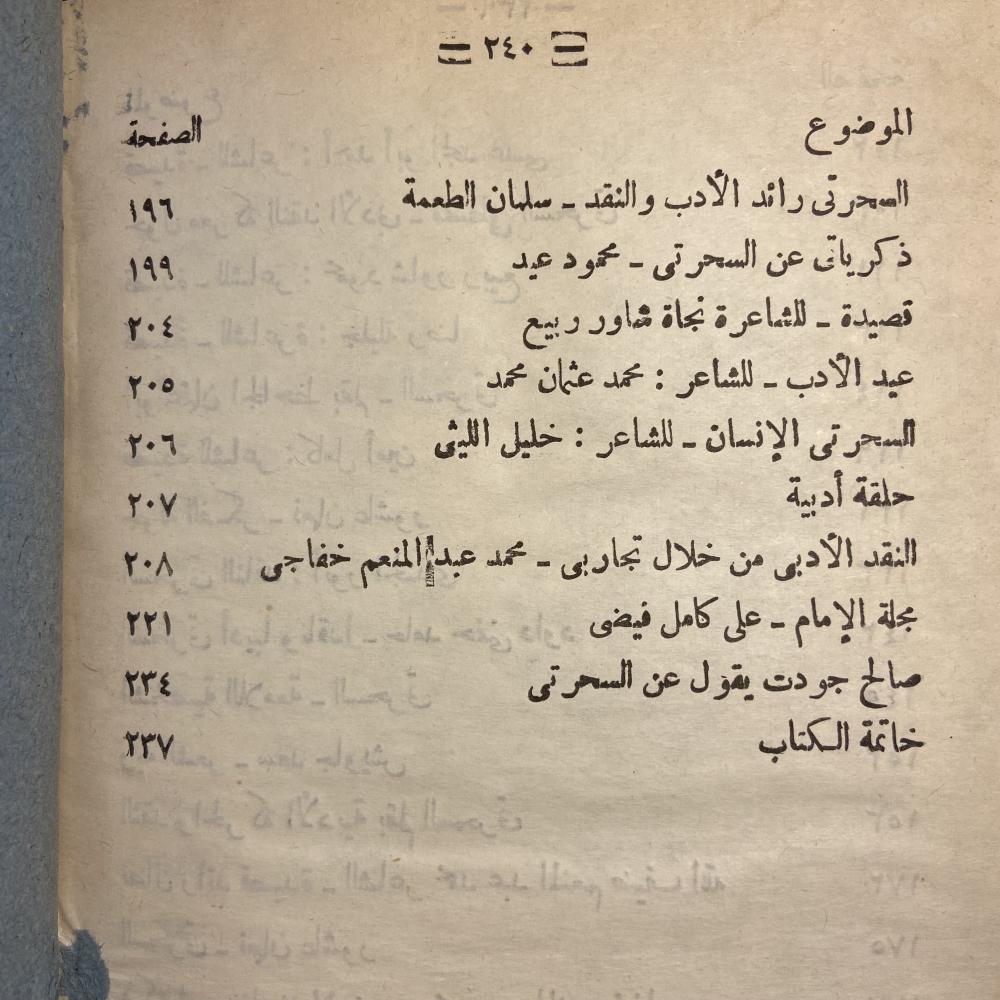 = ٢٤٠ =
الموضوع الصفحة
السحرتى رائد الأدب والنقد ـ سلمان الطعمة ١٩٦
ذكرياتى عن السحرتى ـ محمود عيد ١٩٩
قصيدة ـ للشاعرة نجاة شاور ربيع ٢٠٤
عيد الأدب ـ للشاعر : محمد عثمان محمد ٢٠٥
السحرتى الإنسان ـ للشاعر : خليل الليثى ٢٠٦
حلقة أدبية ٢٠٧
النقد الأدبى من خلال تجاربى ـ محمد عبد المنعم خفاجى ٢٠٨
مجلة الإمام ـ على كامل فيضى ٢٢١
صالح جودت يقول عن السحرتى ٢٣٤
خاتمة الكتاب ٢٣٧